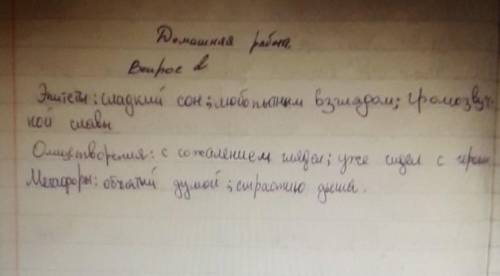 Домашняя работа.
Вопрос 2
Эпитеты: сладкий сон; любопытным взглядом; громозвуч
ной славы
Олицетворения: с сожалением глядел; уже сидел с
Метафоры: объятый думой; страстию дыша.